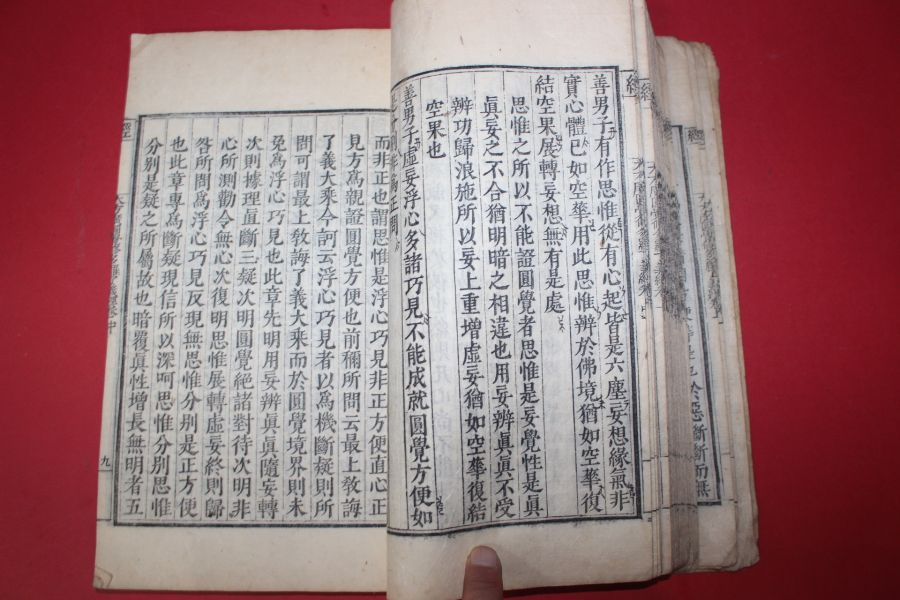 善男子有作思惟從有心起皆是六塵妄想緣氣非
實心體已如空華用此思惟辨於佛境猶如空華復
結空果展轉妄想無有是處
思惟之所以不能證圓覺者思惟是妄覺性是眞
眞妄之不合猶明暗之相違也用妄辨眞眞不受
辨功歸浪施所以妄上重增虛妄猶如空華復結
空果也
善男子虛妄浮心多諸巧見不能成就圓覺方便如
而非正也謂思惟是浮心巧見非正方便直心正
見方爲親證圓覺方便也前彌所問云最上敎誨
了義大乘今訶云浮心巧見者以爲機斷疑則所
問可謂最上敎誨了義大乘而於圓覺境界則未
免爲浮心巧見也此章先明用妄辨眞眞隨妄轉
次則據理眞斷三疑次明圓覺絕諸對待次明非
心所測勸令無心次復明思惟展轉虛妄終則歸
咎所問爲浮心巧見反現無思惟分別是正方便
也此章專爲斷疑現信所以深呵思惟分別思惟
分別是疑之所屬故也暗覆眞性增長無明者五
九